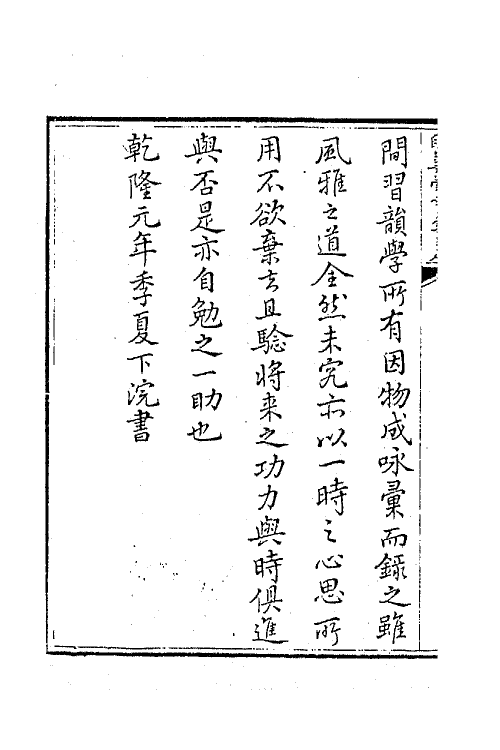 間習韻學所有因物成咏彙而録之雖
風雅之道全然未究亦以一時之心思所
用不欲棄去且驗將来之功力與時俱進
與否是亦自勉之一助也
乾隆元年季夏下浣書